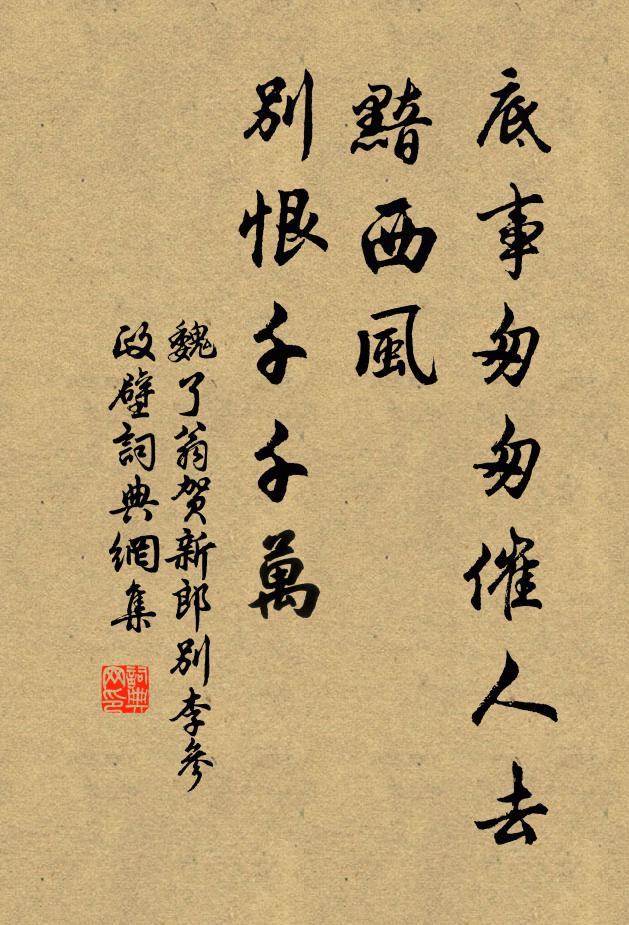 底事匆匆催人去
黯西風
別恨千千萬
魏了翁賀新郎別李參
政壁詞典網集
詞典
网印